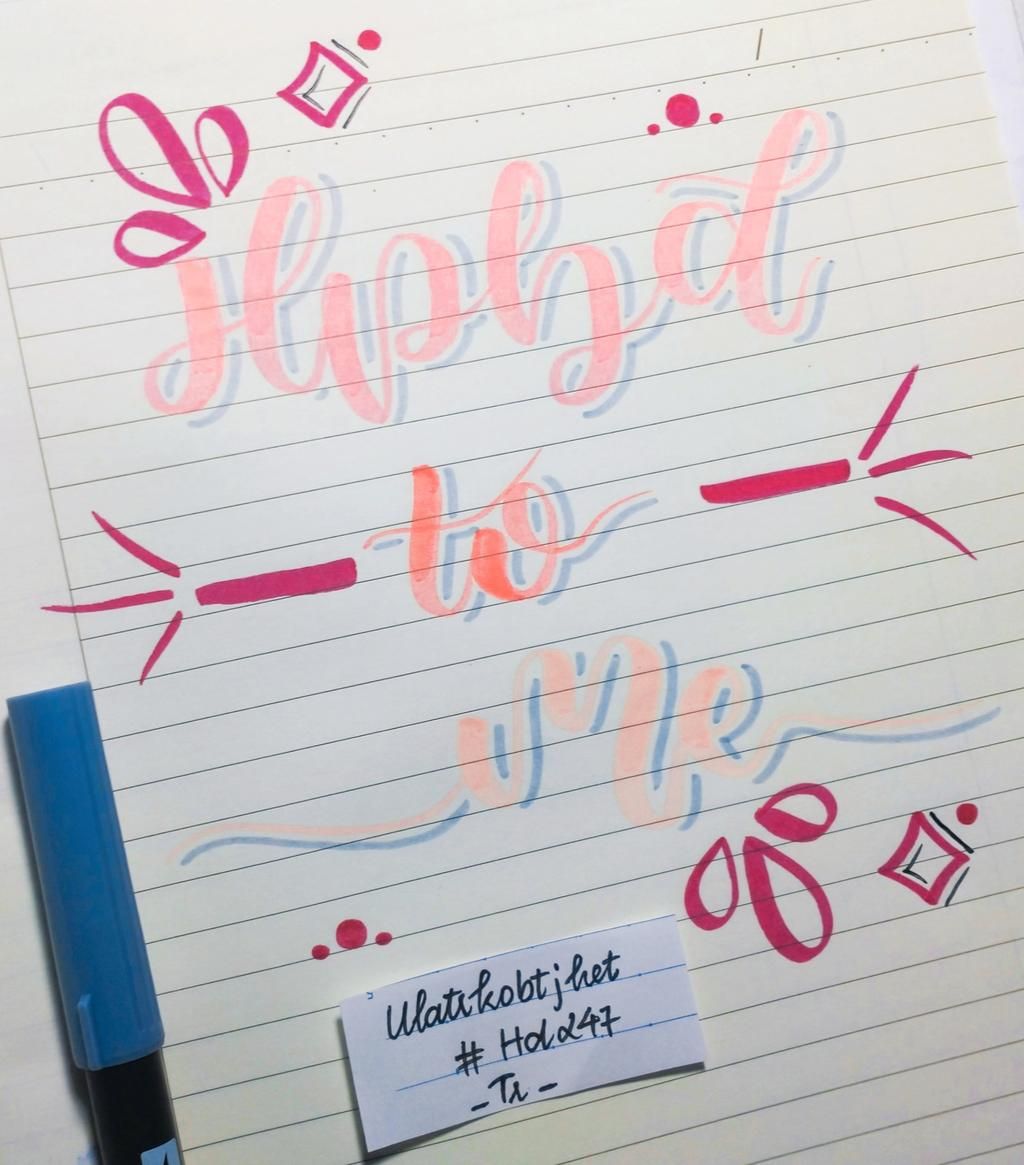 Hpbd
to
me
Ulatikobtjhet
# Hdα247
- Tr -